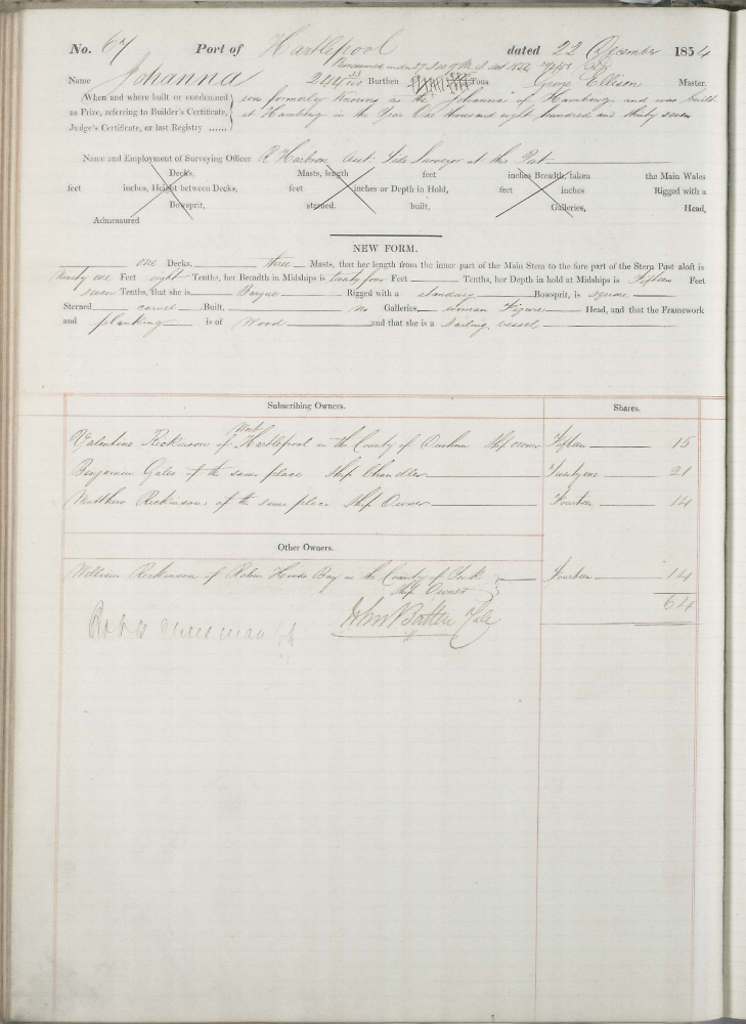 No. 67 Port of Hartlepool dated 22 December 1854
Name Johanna 244 Burthen Tons George Ellison Master.
When and where built or condemned as Prize, referring to Builder's Certificate, Judge's Certificate, or last Registry ......
was formerly Knowing as the "Johanna" of Hamburg and was built
at Hamburg in the Year One thousand eight hundred and thirty seven
Name and Employment of Surveying Officer R Harbron Tide Surveyor at this Port
Decks, Masts, length feet inches Breadth, taken the Main Wales
feet inches, Height between Decks, feet inches or Depth in Hold, feet inches Rigged with a
Bowsprit, sterned. built. Galleries, Head,
Admeasured
NEW FORM.
one Decks. three Masts, that her length from the inner part of the Main Stem to the fore part of the Stern Post aloft is
Ninety one Feet eight Tenths, her Breadth in Midships is twenty four Feet Tenths, her Depth in hold at Midships is Fifteen Feet
seven Tenths, that she is Barque Rigged with a standing Bowsprit, is square
Sterned carvel Built, no Galleries, woman Figure Head, and that the Framework
and planking is of Wood and that she is a Sailing vessel
Subscribing Owners. Shares.
Valentine Rickinson of West Hartlepool in the County of Durham Ship owner Fifteen 15
Benjamin Gales of the same place Ship Chandler Twentyone 21
Matthew Rickinson, of the same place Ship Owner Fourteen 14
Other Owners.
William Rickinson of Robin Hoods Bay in the County of York Fourteen 14
Ship Owner
64
John Batten